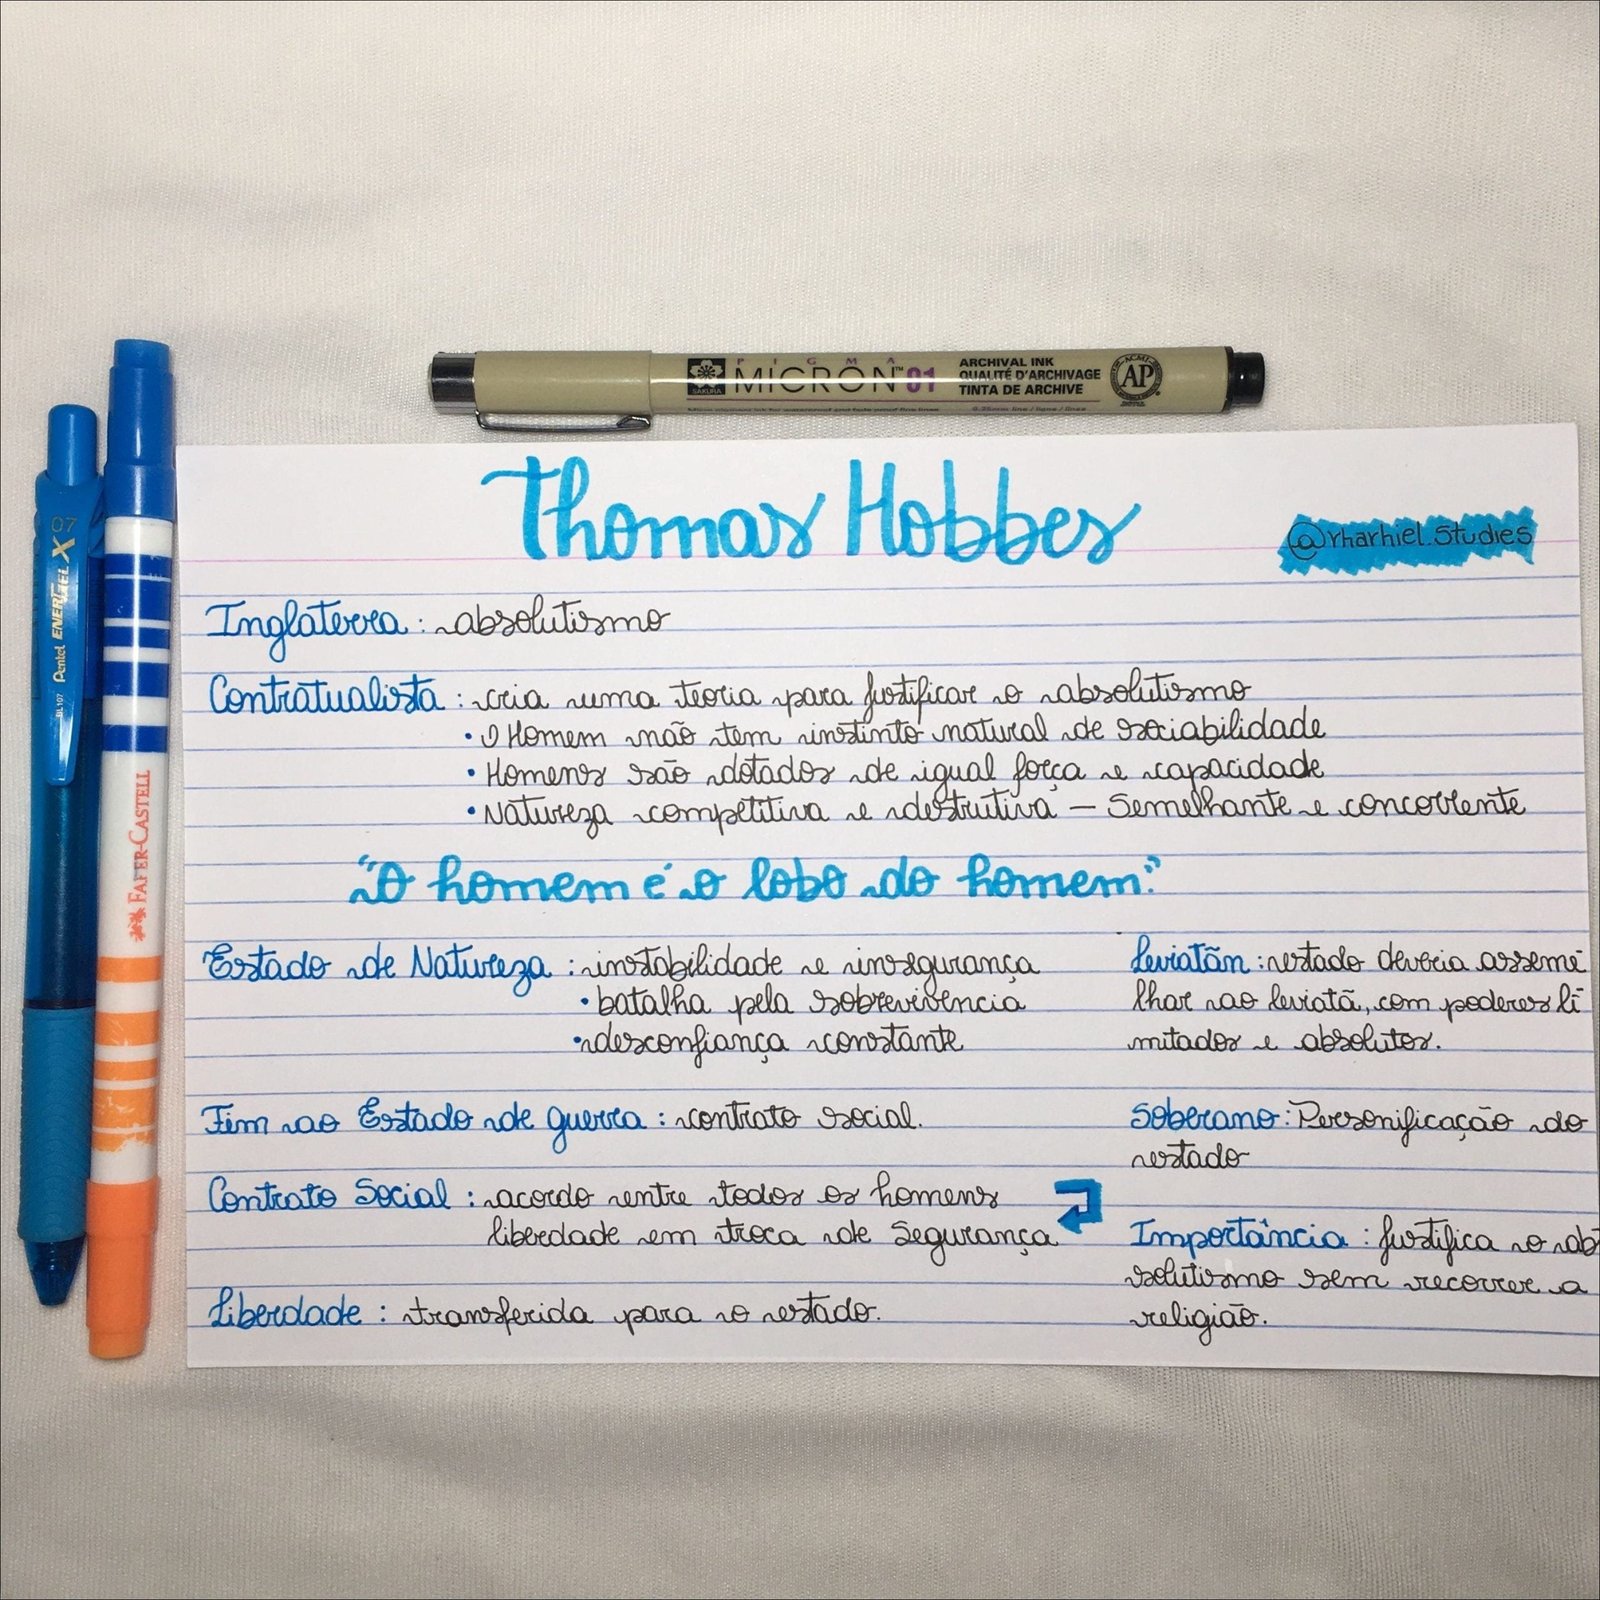 PIGMA
MICRON™ 01
SAKURA
ARCHIVAL INK
QUALITÉ D'ARCHIVAGE
TINTA DE ARCHIVE
ACMI
AP
0.25mm line / ligne / línea
07
Pentel ENERGEL X
BL107
FABER-CASTELL
Thomas Hobbes
@rharhiel.studies
Inglaterra: absolutismo
Contratualista: cria uma teoria para justificar o absolutismo
• O Homem não tem instinto natural de sociabilidade
• Homens são dotados de igual força e capacidade
• Natureza competitiva e destrutiva — semelhante e concorrente
"O homem é o lobo do homem."
Estado de Natureza: instabilidade e insegurança
• batalha pela sobrevivência
• desconfiança constante
Fim ao Estado de guerra: contrato social.
Contrato Social: acordo entre todos os homens
liberdade em troca de segurança
Liberdade: transferida para o estado.
Leviatãn: estado deveria asseme
lhar ao leviatã, com poderes li
mitados e absolutos.
Soberano: Personificação do
estado
Importância: justifica o abs
solutismo sem recorrer a
religião.